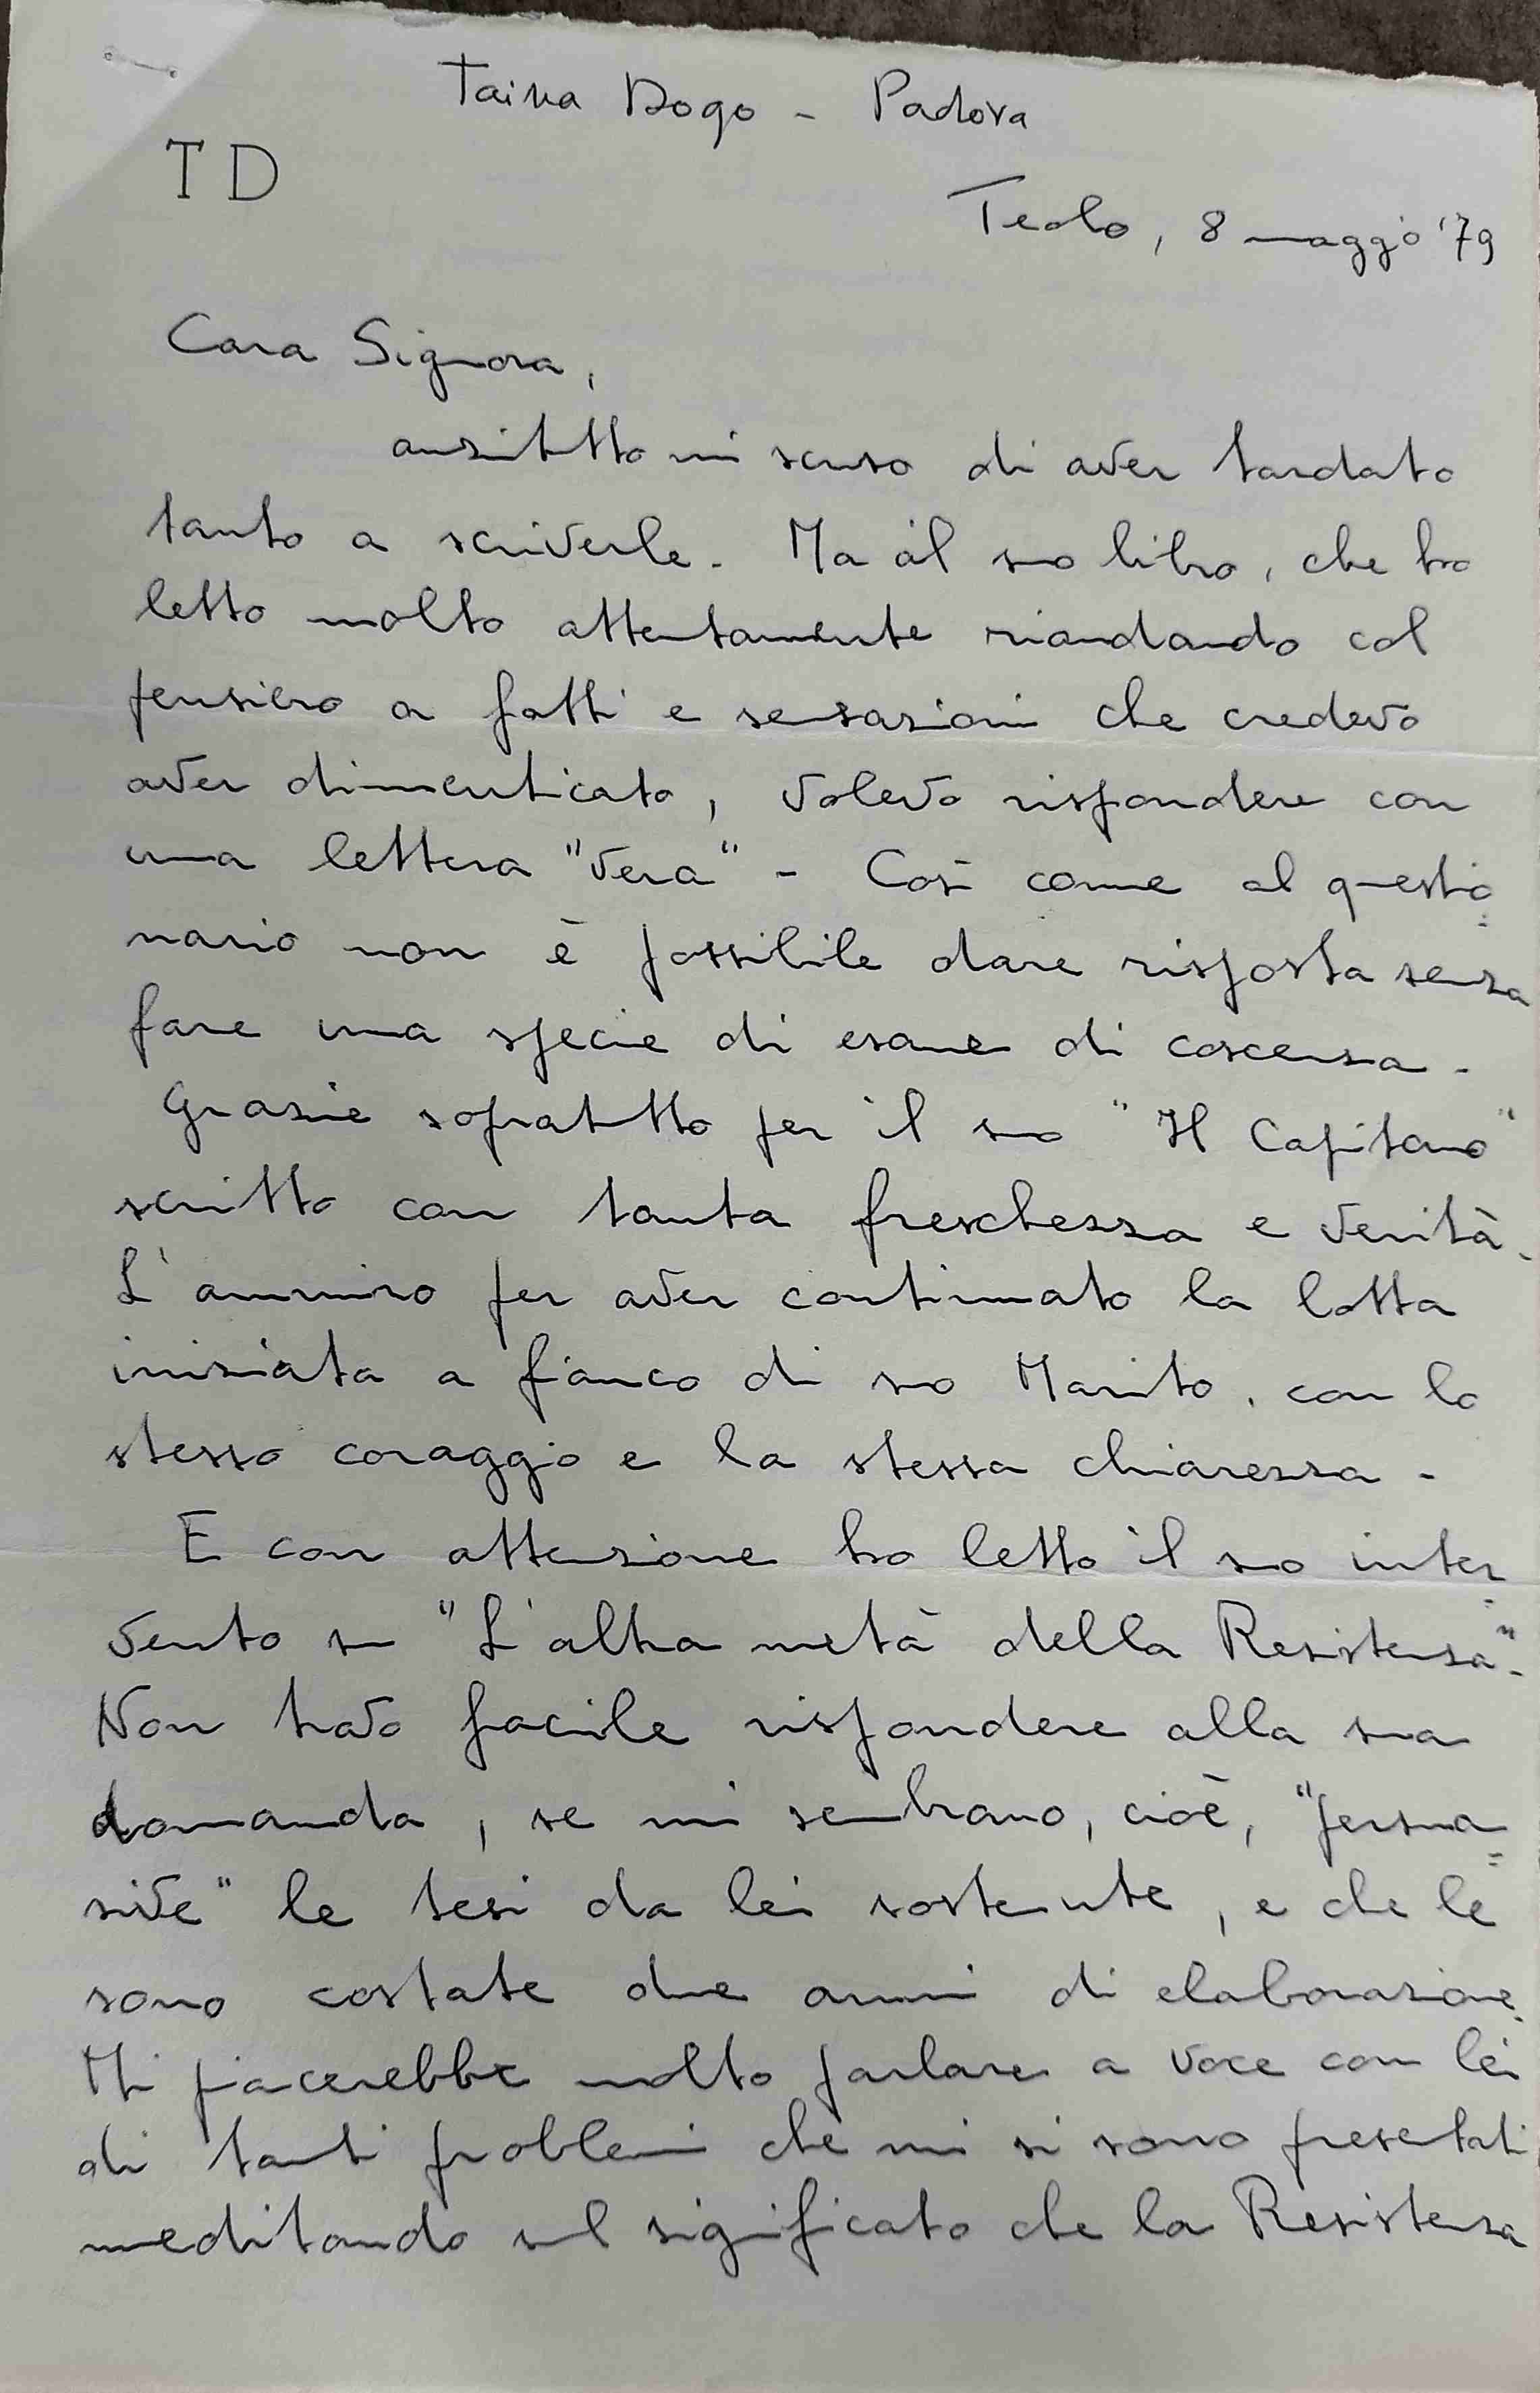 Taina Dogo - Padova
TD
Teolo, 8 maggio '79
Cara Signora,
anzitutto mi scuso di aver tardato
tanto a scriverle. Ma al suo libro, che ho
letto molto attentamente riandando col
pensiero a fatti e sensazioni che credevo
aver dimenticato, volevo rispondere con
una lettera "vera" - Così come al questio=
nario non è possibile dare risposta senza
fare una specie di esame di coscenza -
Grazie sopratutto per il suo "Il Capitano"
scritto con tanta freschezza e verità.
L'ammiro per aver continuato la lotta
iniziata a fianco di suo Marito, con lo
stesso coraggio e la stessa chiarezza -
E con attenzione ho letto il suo inter=
vento su "L'altra metà della Resistenza" -
Non trovo facile rispondere alla sua
domanda, se mi sembrano, cioè, "persua=
sive" le tesi da lei sostenute, e che le
sono costate due anni di elaborazione.
Mi piacerebbe molto parlare a voce con lei
di tanti problemi che mi si sono presentati
meditando sul significato che la Resistenza